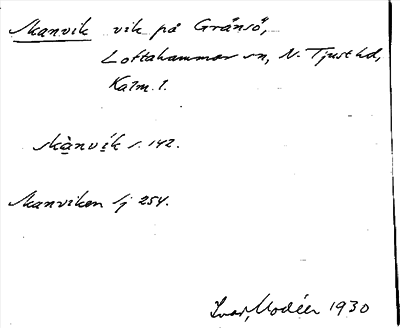 Skanvik vik på Gränsö,
Loftahammar sn, N. Tjust hd,
Kalm. l.
skànvík s. 142.
Skanviken Sj 254.
Ivar Modéer 1930